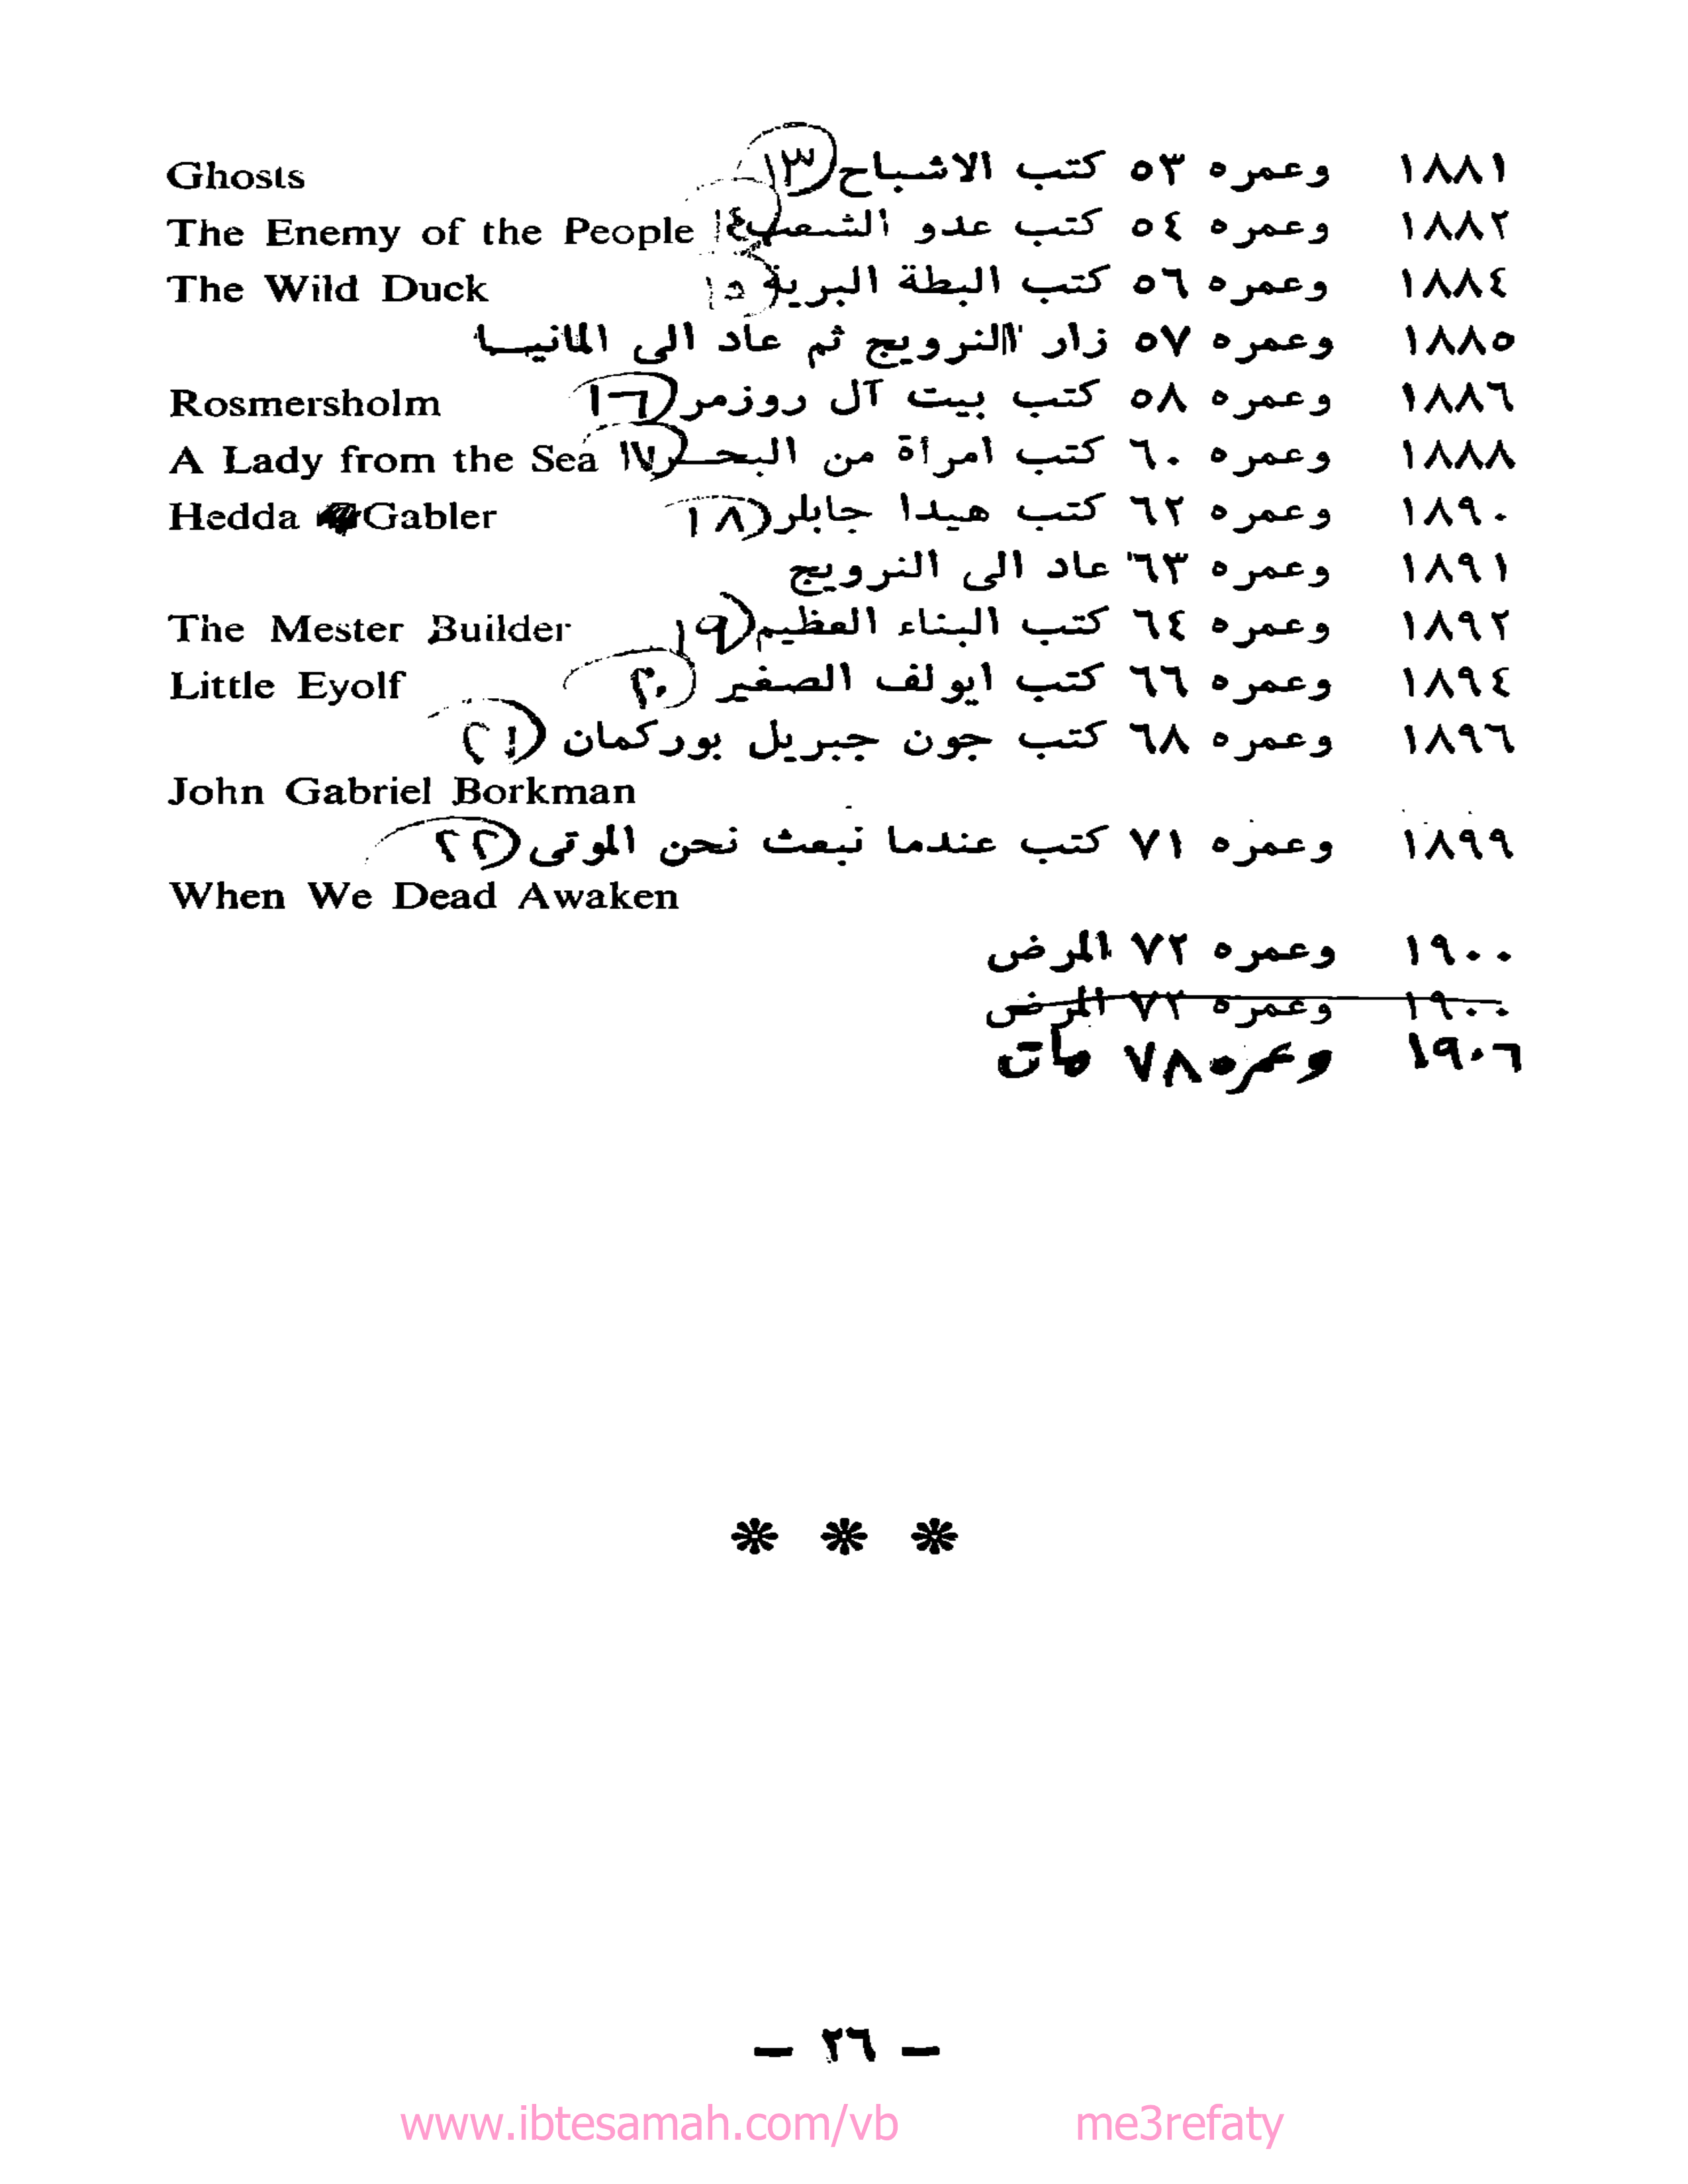 ١٨٨١ وعمره ٥٣ كتب الاشباح (١٣ Ghosts
١٨٨٢ وعمره ٥٤ كتب عدو الشعب (١٤ The Enemy of the People
١٨٨٤ وعمره ٥٦ كتب البطة البرية (١٥ The Wild Duck
١٨٨٥ وعمره ٥٧ زار النرويج ثم عاد الى المانيا
١٨٨٦ وعمره ٥٨ كتب بيت آل روزمر (١٦ Rosmersholm
١٨٨٨ وعمره ٦٠ كتب امرأة من البحر (١٧ A Lady from the Sea
١٨٩٠ وعمره ٦٢ كتب هيدا جابلر (١٨ Hedda Gabler
١٨٩١ وعمره ٦٣ عاد الى النرويج
١٨٩٢ وعمره ٦٤ كتب البناء العظيم (١٩ The Mester Builder
١٨٩٤ وعمره ٦٦ كتب ايولف الصغير (٢٠ Little Eyolf
١٨٩٦ وعمره ٦٨ كتب جون جبريل بوركمان (٢١
John Gabriel Borkman
١٨٩٩ وعمره ٧١ كتب عندما نبعث نحن الموتى (٢٢
When We Dead Awaken
١٩٠٠ وعمره ٧٢ المرض
١٩٠٠ وعمره ٧٢ المرض
١٩٠٦ وعمره ٧٨ مات
* * *
— ٢٦ —
www.ibtesamah.com/vb me3refaty